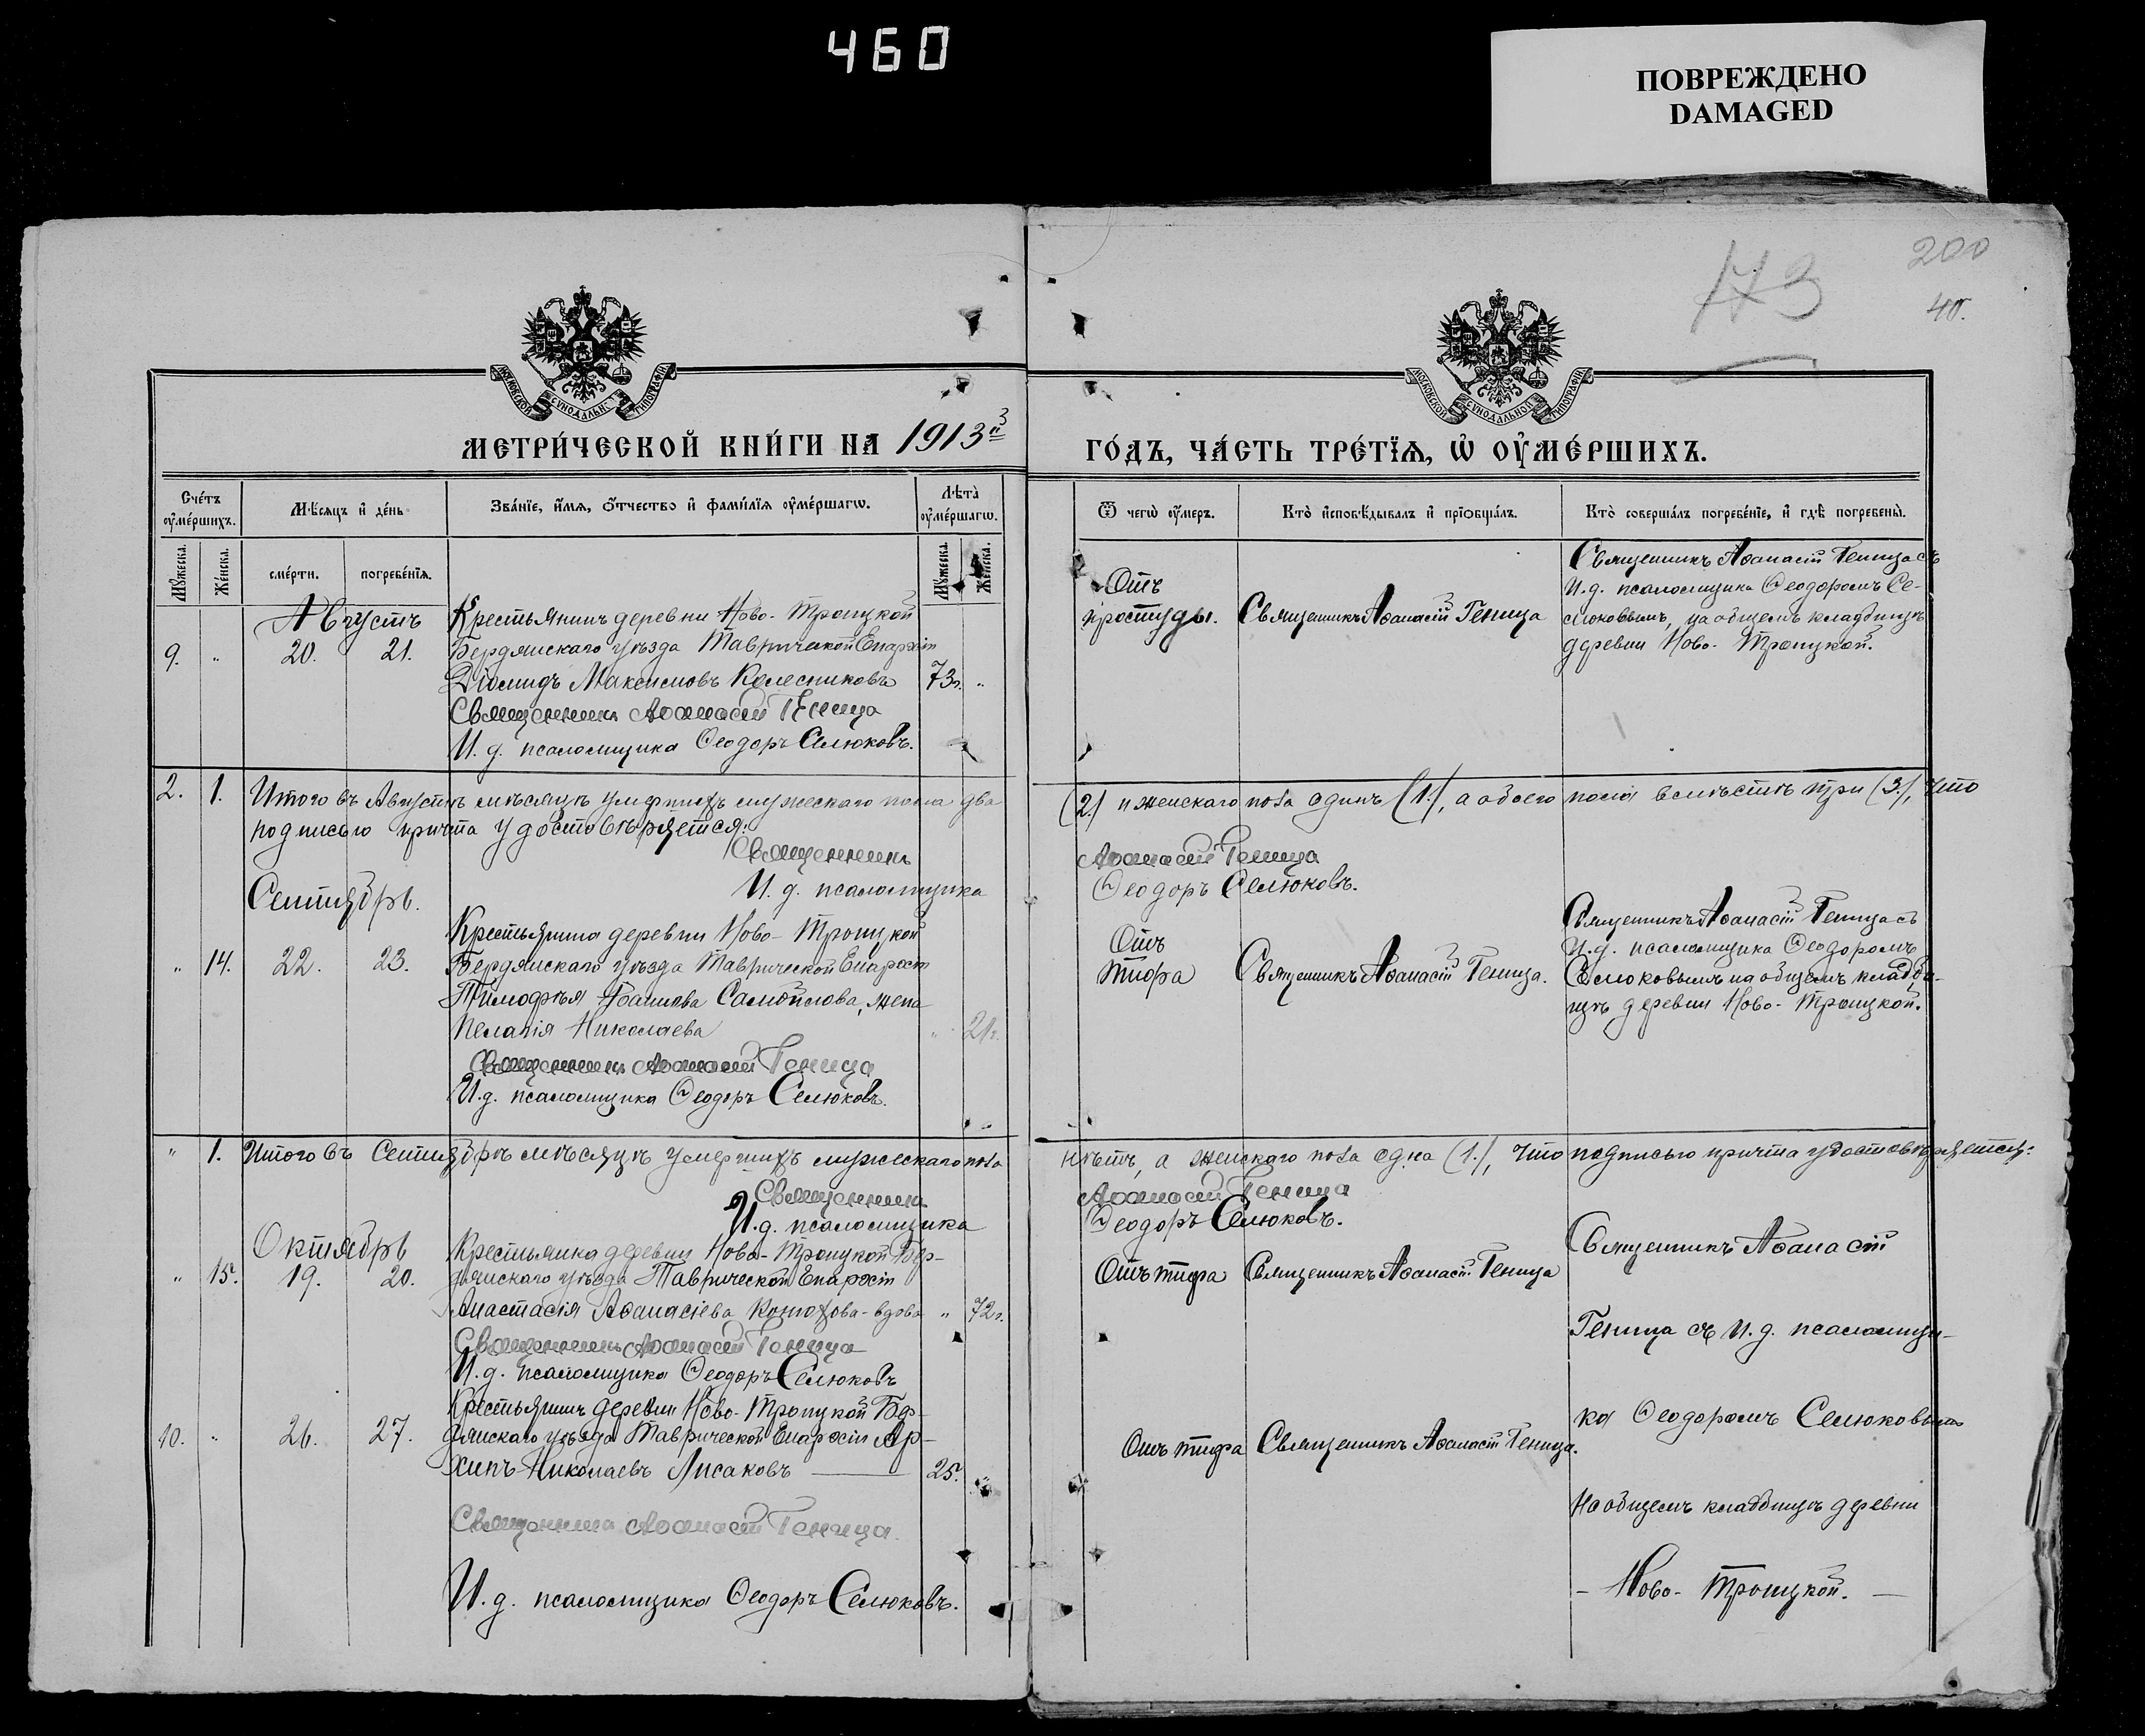 460
ПОВРЕЖДЕНО
DAMAGED
173
200
40.
МОСКОВСКОЙ СѴНОДАЛЬНОЙ ТИПОГРАФІИ
МОСКОВСКОЙ СѴНОДАЛЬНОЙ ТИПОГРАФІИ
МЕТРИ́ЧЕСКОЙ КНИ́ГИ НА 1913й
ГО́ДЪ, ЧА́СТЬ ТРЕ́ТЇѦ, Ѡ҆ ОУ҆МЕ́РШИХЪ.
Сче́тъ оу҆ме́ршихъ.
Мѣ́сяцъ и҆ де́нь
Зва́нїе, и҆́мѧ, о҆́тчество и҆ фами́лїѧ оу҆ме́ршагѡ.
Лѣ́та оу҆ме́ршагѡ.
Ѿ чегѡ̀ оу҆́меръ.
Кто̀ и҆сповѣ́дывалъ и҆ прїѡбща́лъ.
Кто̀ соверша́лъ погребе́нїе, и҆ гдѣ̀ погребены̀.
Мꙋ́жеска.
Же́нска.
сме́рти.
погребе́нїѧ.
Мꙋ́жеска.
Же́нска.
Августъ
9. " 20. 21.
Крестьянинъ деревни Ново-Троицкой
Бердянскаго уѣзда Таврической Епархіи
Діомидъ Максимовъ Колесниковъ 73г. "
Священникъ Аѳанасій Геница
И. д. псаломщика Ѳеодоръ Селюковъ.
Отъ
простуды.
Священникъ Аѳанасій Геница
Священникъ Аѳанасій Геница съ
И. д. псаломщика Ѳеодоромъ Се-
люковымъ, на общемъ кладбищѣ
деревни Ново-Троицкой.
2. 1. Итого въ Августѣ мѣсяцѣ умершихъ мужескаго пола два
(2.) и женскаго пола одинъ (1.), а обоего пола вмѣстѣ три (3.), что
подписью причта удостовѣряется:
Священникъ
Аѳанасій Геница
И. д. псаломщика
Ѳеодоръ Селюковъ.
Сентябрь.
" 14. 22. 23.
Крестьянина деревни Ново-Троицкой
Бердянскаго уѣзда Таврической Епархіи
Тимофѣя Іоаннова Самойлова, жена
Пелагія Николаева " 21г.
Священникъ Аѳанасій Геница
И. д. псаломщика Ѳеодоръ Селюковъ.
Отъ
тифа
Священникъ Аѳанасій Геница.
Священникъ Аѳанасій Геница съ
И. д. псаломщика Ѳеодоромъ
Селюковымъ на общемъ кладби-
щѣ деревни Ново-Троицкой.
" 1. Итого въ Сентябрѣ мѣсяцѣ умершихъ мужескаго пола
нѣтъ, а женскаго пола одна (1.), что подписью причта удостовѣряется:
Священникъ
Аѳанасій Геница
И. д. псаломщика
Ѳеодоръ Селюковъ.
Октябрь
" 15. 19. 20.
Крестьянка деревни Ново-Троицкой Бер-
дянскаго уѣзда Таврической Епархіи
Анастасія Аѳанасіева Конюхова-вдова " 72г.
Священникъ Аѳанасій Геница
И. д. псаломщика Ѳеодоръ Селюковъ
Отъ тифа
Священникъ Аѳанасій Геница
Священникъ Аѳанасій
Геница съ И. д. псаломщи-
ка Ѳеодоромъ Селюковымъ
На общемъ кладбищѣ деревни
- Ново-Троицкой. -
10. " 26. 27.
Крестьянинъ деревни Ново-Троицкой Бер-
дянскаго уѣзда Таврической Епархіи Ар-
хипъ Николаевъ Лисаковъ — 25. "
Отъ тифа
Священникъ Аѳанасій Геница.
Священникъ Аѳанасій Геница.
И. д. псаломщика Ѳеодоръ Селюковъ.